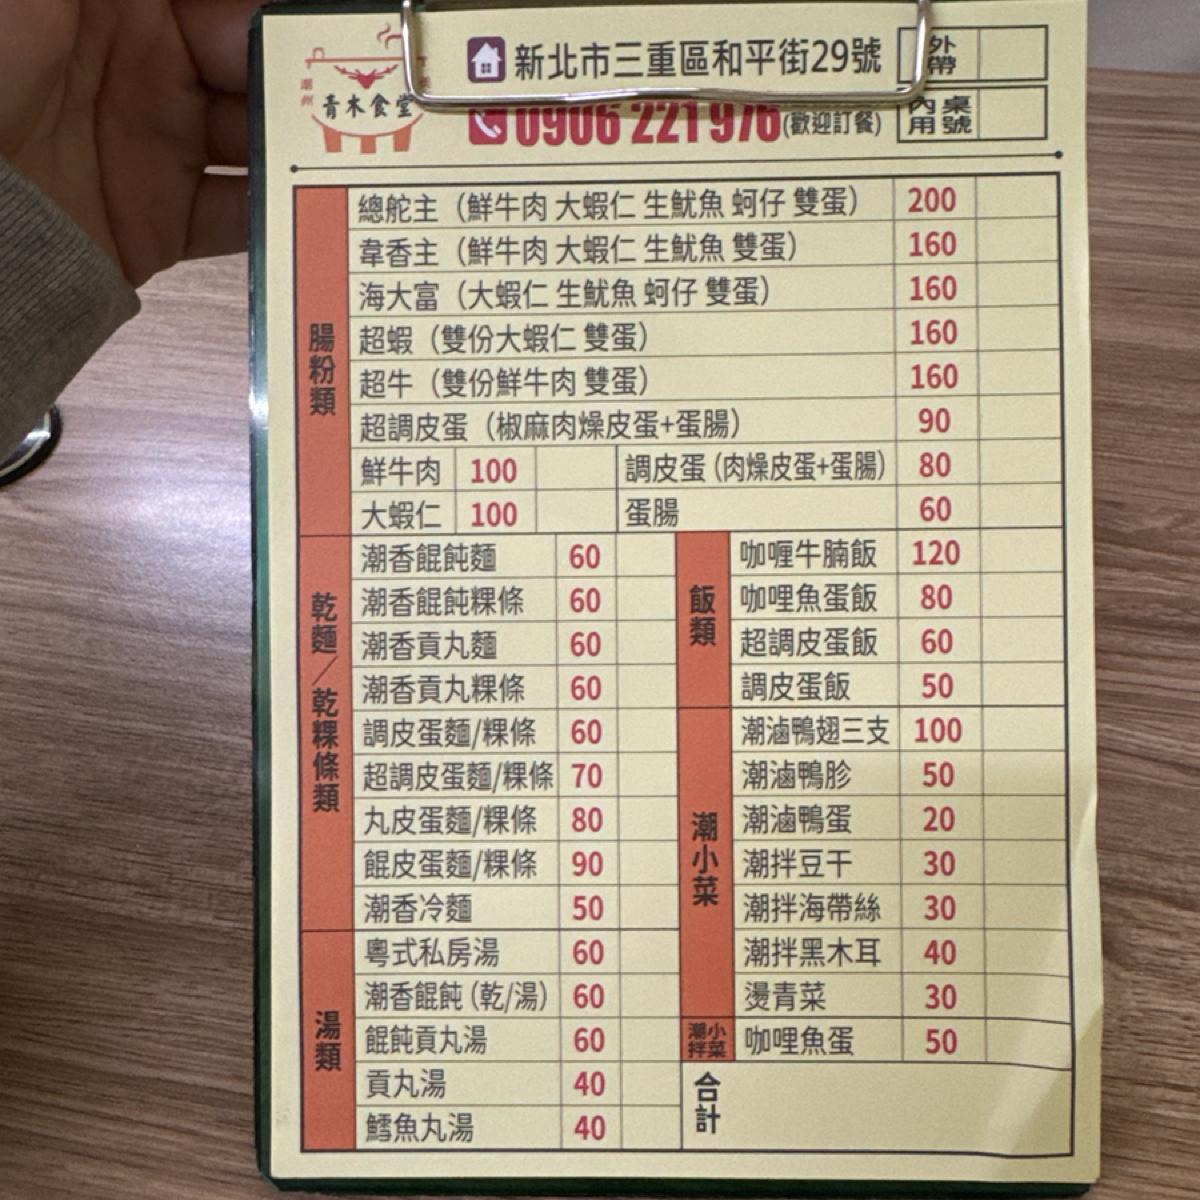 潮州
青木食堂
新北市三重區和平街29號
外帶
0906 221 976(歡迎訂餐)
內用 桌號
腸粉類
總舵主（鮮牛肉 大蝦仁 生魷魚 蚵仔 雙蛋） 200
韋香主（鮮牛肉 大蝦仁 生魷魚 雙蛋） 160
海大富（大蝦仁 生魷魚 蚵仔 雙蛋） 160
超蝦（雙份大蝦仁 雙蛋） 160
超牛（雙份鮮牛肉 雙蛋） 160
超調皮蛋（椒麻肉燥皮蛋+蛋腸） 90
鮮牛肉 100 調皮蛋（肉燥皮蛋+蛋腸） 80
大蝦仁 100 蛋腸 60
乾麵／乾粿條類
潮香餛飩麵 60
潮香餛飩粿條 60
潮香貢丸麵 60
潮香貢丸粿條 60
調皮蛋麵/粿條 60
超調皮蛋麵/粿條 70
丸皮蛋麵/粿條 80
餛皮蛋麵/粿條 90
潮香冷麵 50
湯類
粵式私房湯 60
潮香餛飩（乾/湯） 60
餛飩貢丸湯 60
貢丸湯 40
鱈魚丸湯 40
飯類
咖喱牛腩飯 120
咖哩魚蛋飯 80
超調皮蛋飯 60
調皮蛋飯 50
潮小菜
潮滷鴨翅三支 100
潮滷鴨胗 50
潮滷鴨蛋 20
潮拌豆干 30
潮拌海帶絲 30
潮拌黑木耳 40
燙青菜 30
潮拌小菜
咖哩魚蛋 50
合計